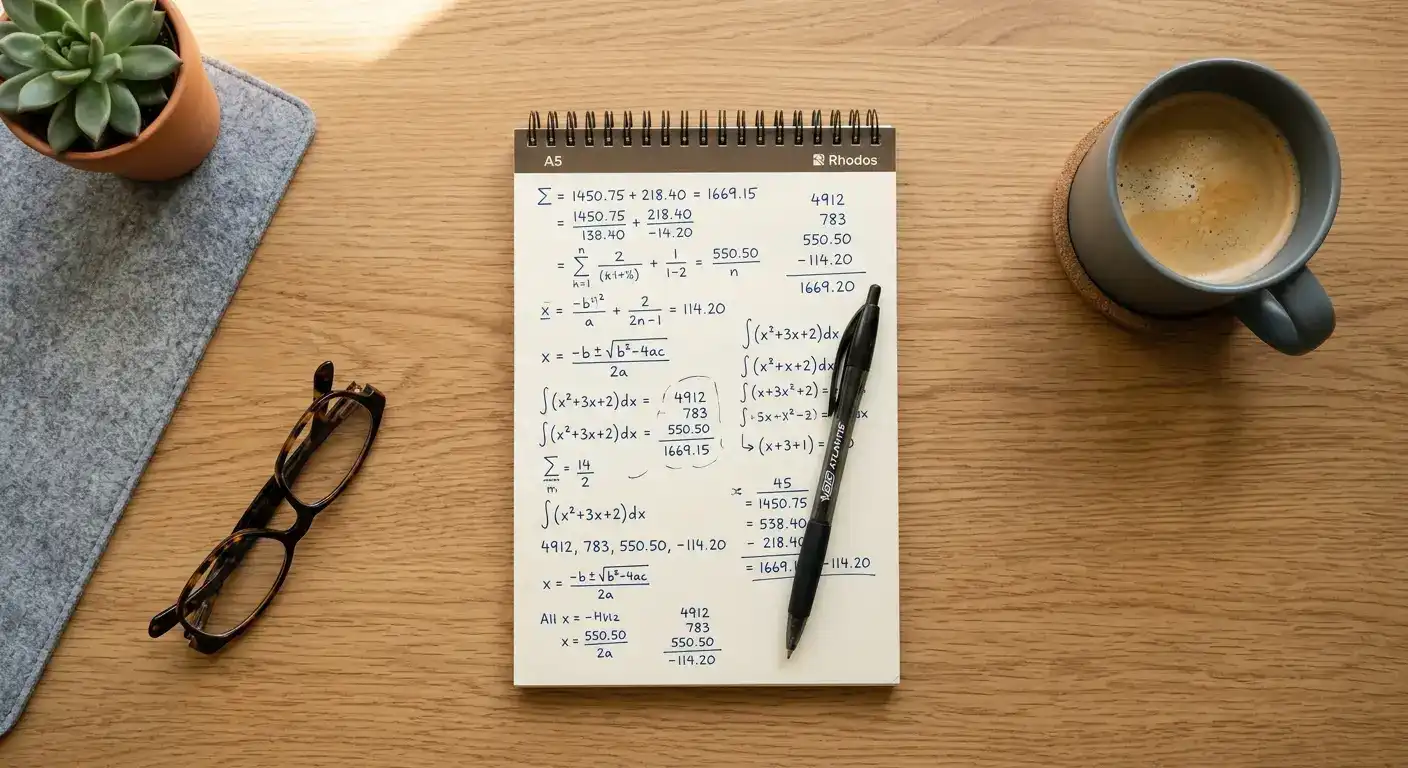 A5 Rhodos
Σ = 1450.75 + 218.40 = 1669.15
= 1450.75/138.40 + 218.40/-14.20
= Σ n k=1 2/ + 1/1-2 = 550.50/n
x̄ = /a + 2/2n-1 = 114.20
x = -b ± √b²-4ac/2a
∫(x²+3x+2)dx =
∫(x²+3x+2)dx =
4912
783
550.50
1669.15
Σ m = 14/2
∫(x²+3x+2)dx
4912, 783, 550.50, -114.20
x = -b ± √b²-4ac/2a
All x =
x = 550.50/2a
4912
783
550.50
-114.20
4912
783
550.50
-114.20
1669.20
∫(x²+3x+2)dx
∫(x²+x+2)dx
∫(x+3x²+2) =
dx
↳ (x+3+1) =
45
= 1450.75
= 538.40
- 218.40
= 1669.1 -114.20
BIC ATLANTIS